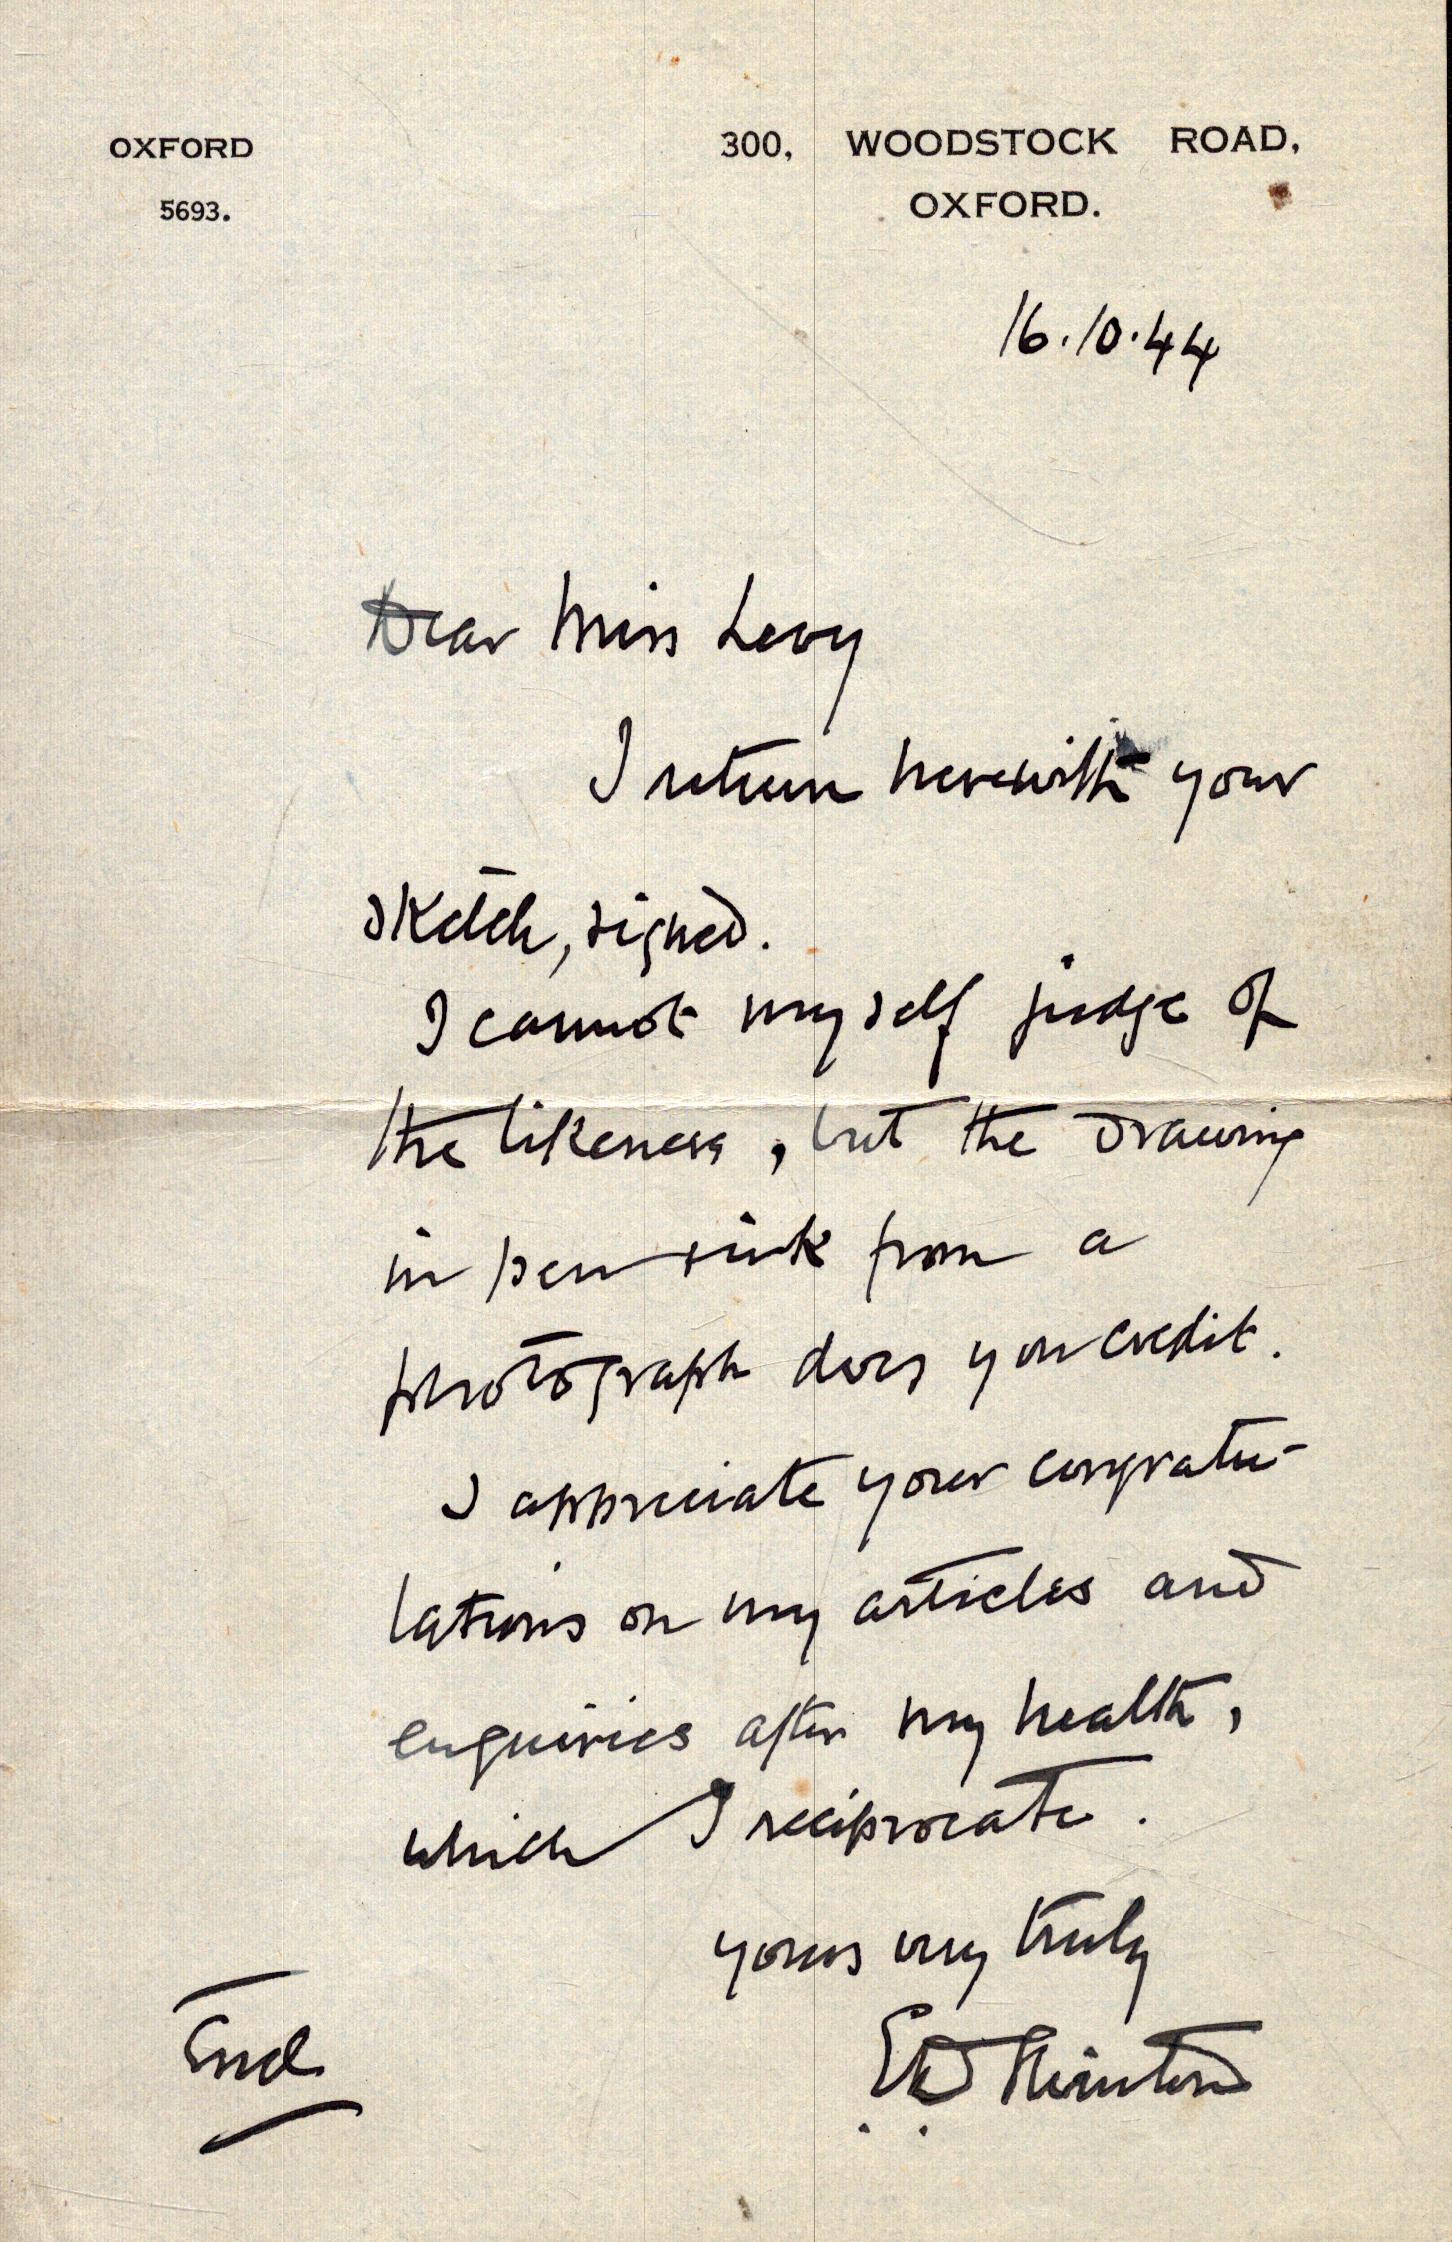 OXFORD
5693.
300, WOODSTOCK ROAD,
OXFORD.
16.10.44
Dear Miss Levy
I return herewith your
sketch, signed.
I cannot myself judge of
the likeness, but the drawing
in pen & ink from a
photograph does you credit.
I appreciate your congratu-
lations on my articles and
enquiries after my health,
which I reciprocate.
yours very truly
E.D. Swinton
Encl